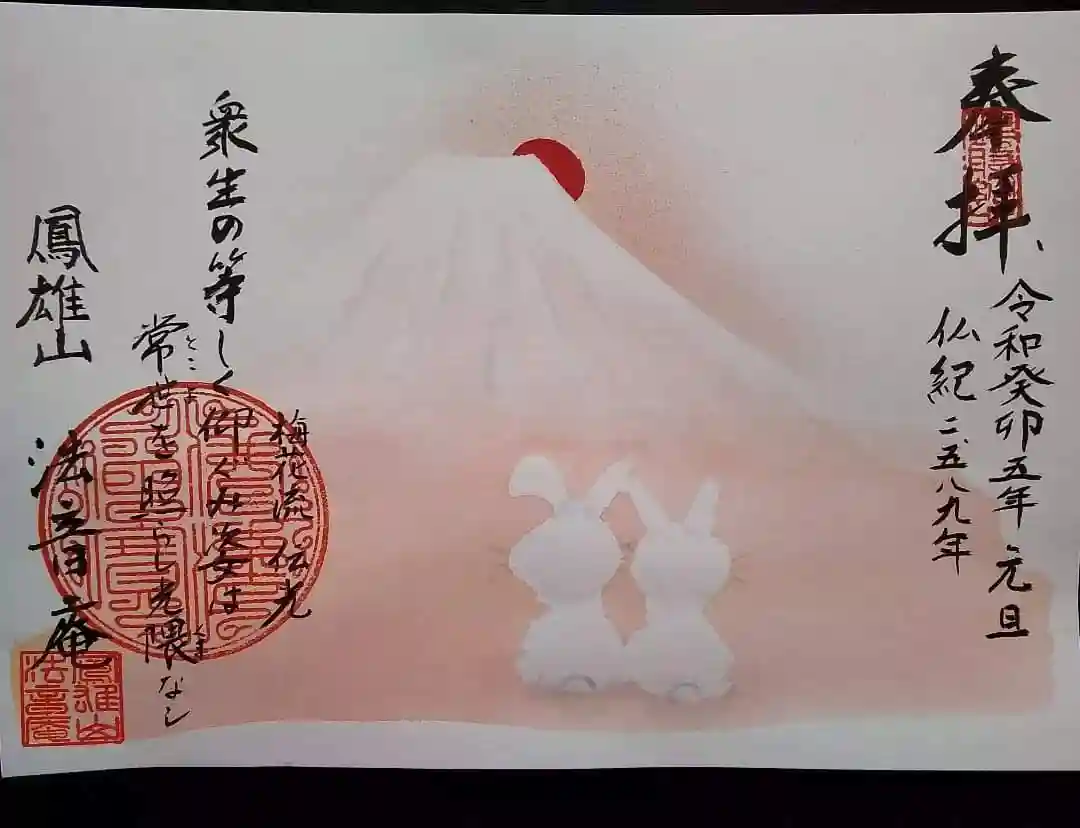 奉拝、
令和癸卯五年 元旦
仏紀二五八九年
梅花流 伝光
衆生の等しく仰ぐみ姿は
常世を照らし光隈なし
とこよ
くま
鳳雄山 法音庵
鳳雄山
法音庵